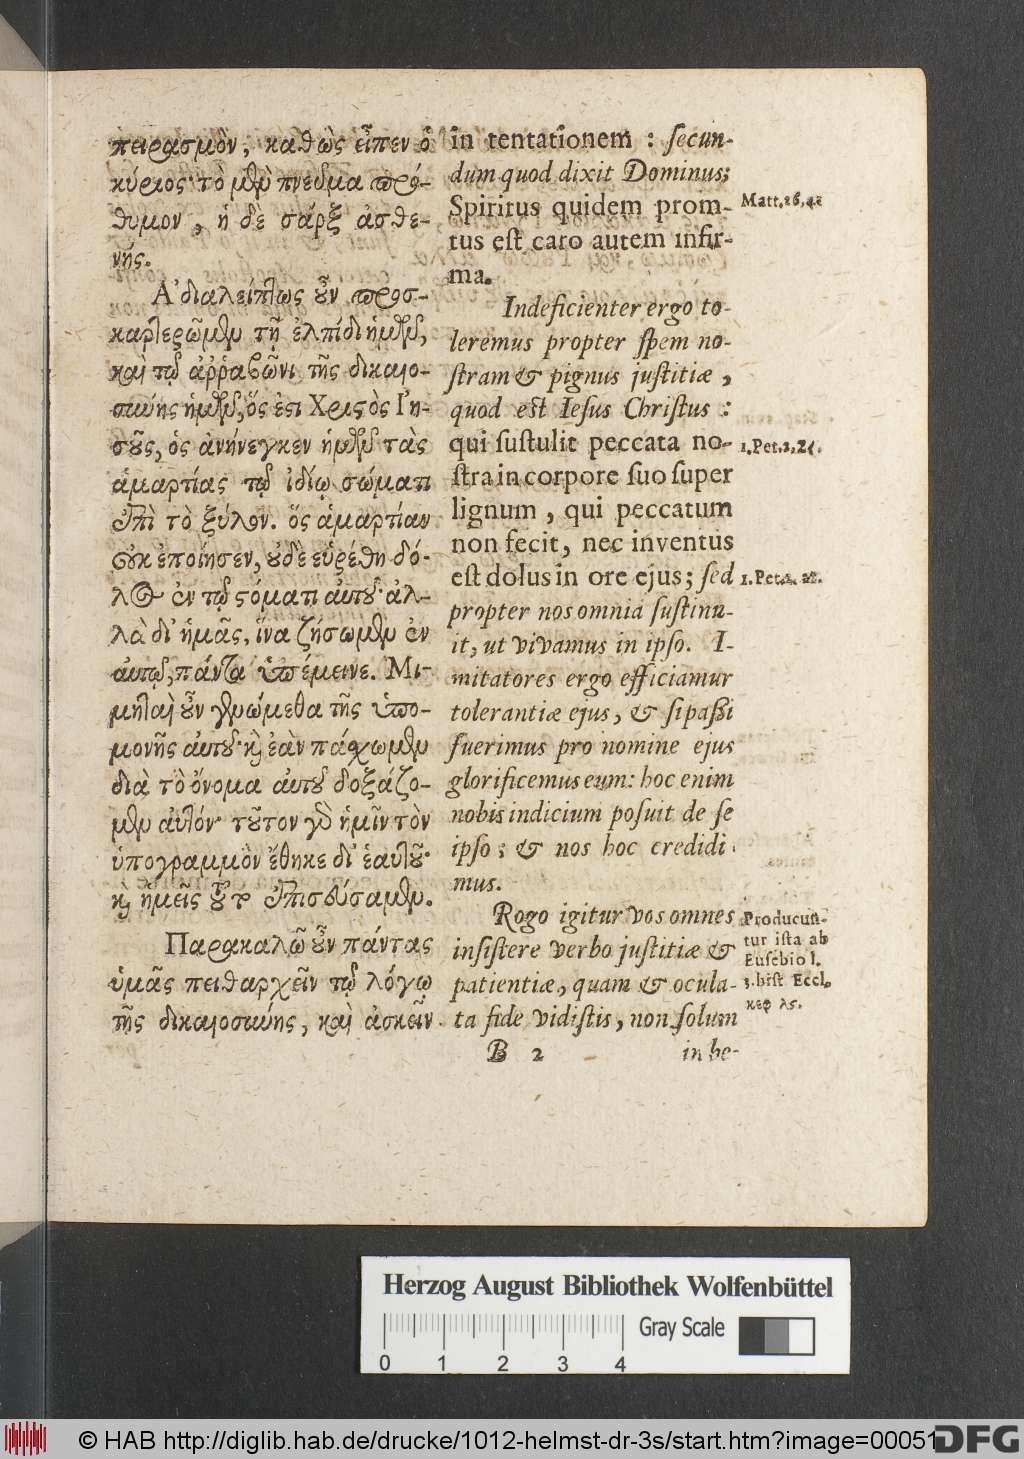 πειρασμὸν, καθὼς εἶπεν ὁ
κύριος· τὸ μὲν πνεῦμα πρό-
θυμον, ἡ δὲ σάρξ ἀσθε-
νής.
Ἀδιαλείπτως οὖν προσ-
καρτερῶμεν τῇ ἐλπίδι ἡμῶν,
καὶ τῷ ἀῤῥαβῶνι τῆς δικαιο-
σύνης ἡμῶν, ὅς ἐστι Χριστὸς Ἰη-
σοῦς, ὁς ἀνήνεγκεν ἡμῶν τὰς
ἁμαρτίας τῷ ἰδίῳ σώματι
ἐπὶ τὸ ξύλον. ὅς ἁμαρτίαν
οὐκ ἐποίησεν, οὐδὲ εὑρέθη δό-
λος ἐν τῷ στόματι αὐτοῦ· ἀλ-
λὰ δι᾽ ἡμᾶς, ἵνα ζήσωμεν ἐν
αὐτῷ, πάντα ὑπέμεινε. Μι-
μηταὶ οὖν γενώμεθα τῆς ὑπο-
μονῆς αὐτοῦ· καὶ ἐὰν πάσχωμεν
διὰ τὸ ὄνομα αὐτοῦ δοξάζο-
μεν αὐτόν· τοῦτον γὰρ ἡμῖν τὸν
ὑπογραμμὸν ἔθηκε δι᾽ ἑαυτοῦ·
καὶ ἡμεῖς τοῦτο ἐπιστεύσαμεν.
Παρακαλῶ οὖν πάντας
ὑμᾶς πειθαρχεῖν τῷ λόγῳ
τῆς δικαιοσύνης, καὶ ἀσκεῖν
in tentationem : secun-
dum quod dixit Dominus;
Spiritus quidem prom-
tus est caro autem infir-
ma.
Indeficienter ergo to-
leremus propter spem no-
stram & pignus justitiæ,
quod est Iesus Christus :
qui sustulit peccata no-
stra in corpore suo super
lignum, qui peccatum
non fecit, nec inventus
est dolus in ore ejus; sed
propter nos omnia sustinu-
it, ut vivamus in ipso. I-
mitatores ergo efficiamur
tolerantiæ ejus, & si passi
fuerimus pro nomine ejus
glorificemus eum: hoc enim
nobis indicium posuit de se
ipso; & nos hoc credidi-
mus.
Rogo igitur vos omnes
insistere verbo justitiæ &
patientiæ, quam & ocula-
ta fide vidistis, non solum
B 2 in be-
Matt. 26, 41
1. Pet. 2, 24.
1. Pet. 2. 22.
Producun-
tur ista ab
Eusebio l.
3. hist Eccl.
κεφ λς.
Herzog August Bibliothek Wolfenbüttel
Gray Scale
0 1 2 3 4
© HAB http://diglib.hab.de/drucke/1012-helmst-dr-3s/start.htm?image=00051
DFG